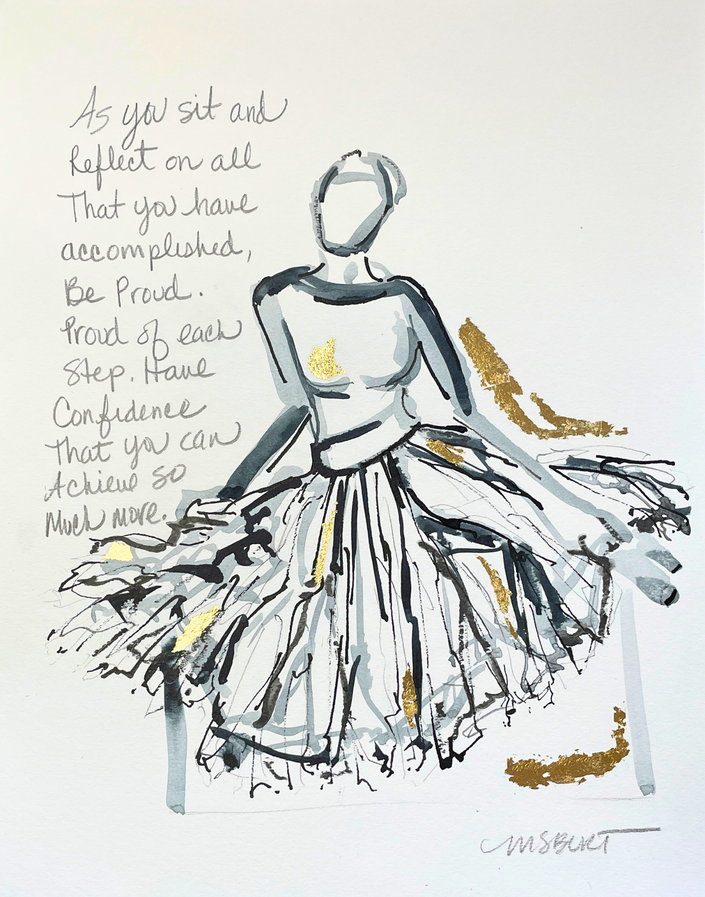 As you sit and
Reflect on all
That you have
accomplished,
Be Proud.
Proud of each
Step. Have
Confidence
That you can
Achieve so
Much more.
CMSBURT